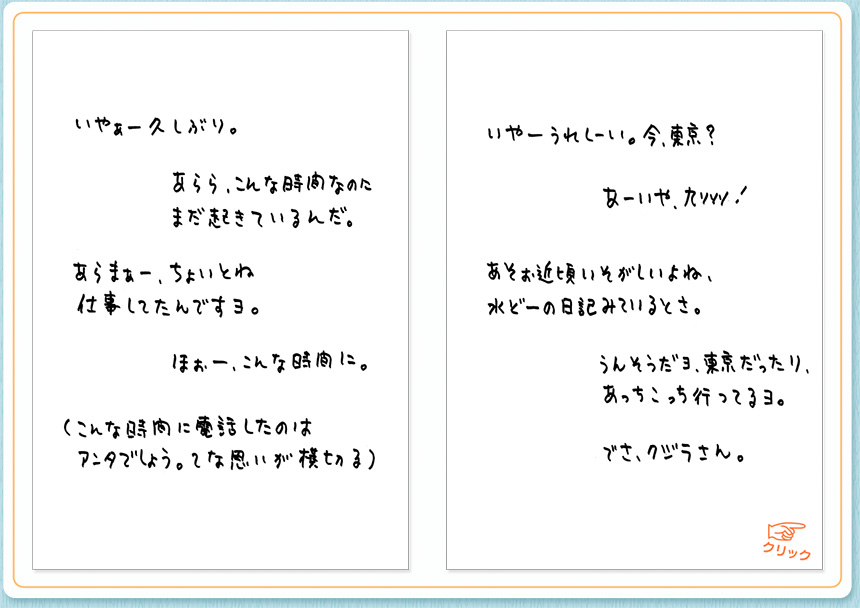 いやぁー久しぶり。
あらら、こんな時間なのに
まだ起きているんだ。
あらまぁー、ちょいとね
仕事してたんですヨ。
ほぉー、こんな時間に。
(こんな時間に電話したのは
アンタでしょう。てな思いが横切る)
いやーうれしーい。今、東京?
あーいや、九ッッッ!
あそぉ近頃いそがしいよね、
水どーの日記みているとさ。
うんそうだヨ、東京だったり、
あっちこっち行ってるヨ。
でさ、クジラさん。
クリック